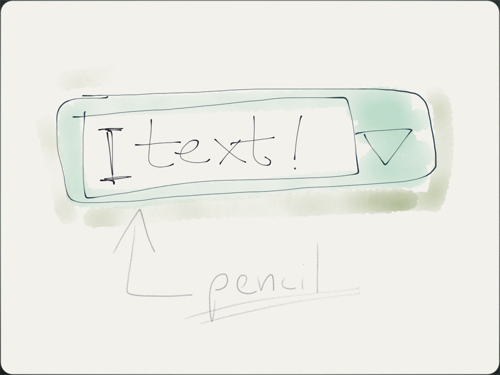 I text!
pencil